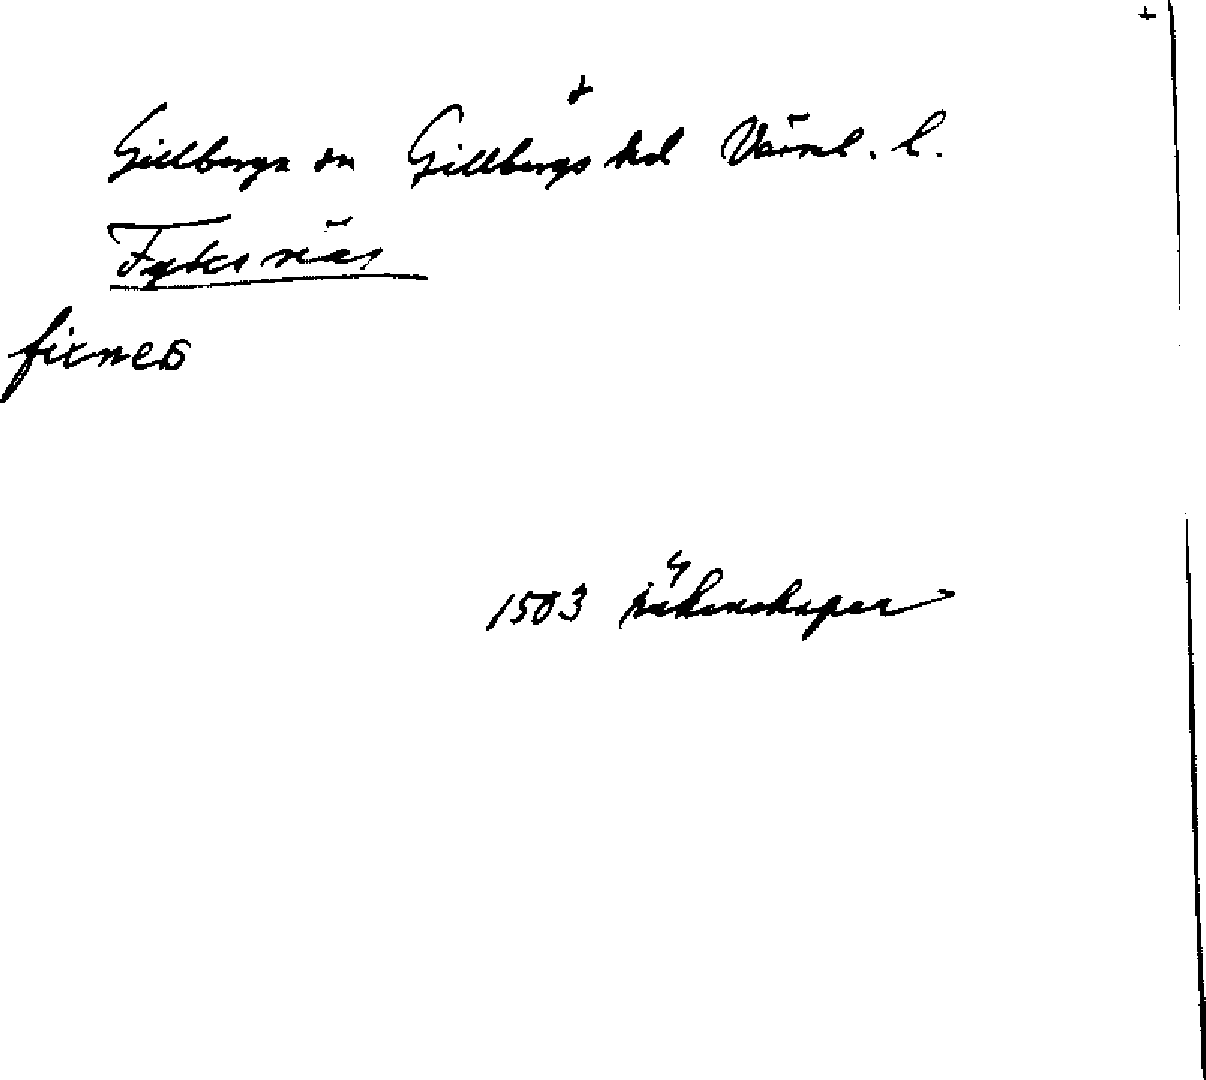 Gillberga sn Gillbergs hd Värml. l.
Fyksnäs
ficnes
1503 Räkenskaper